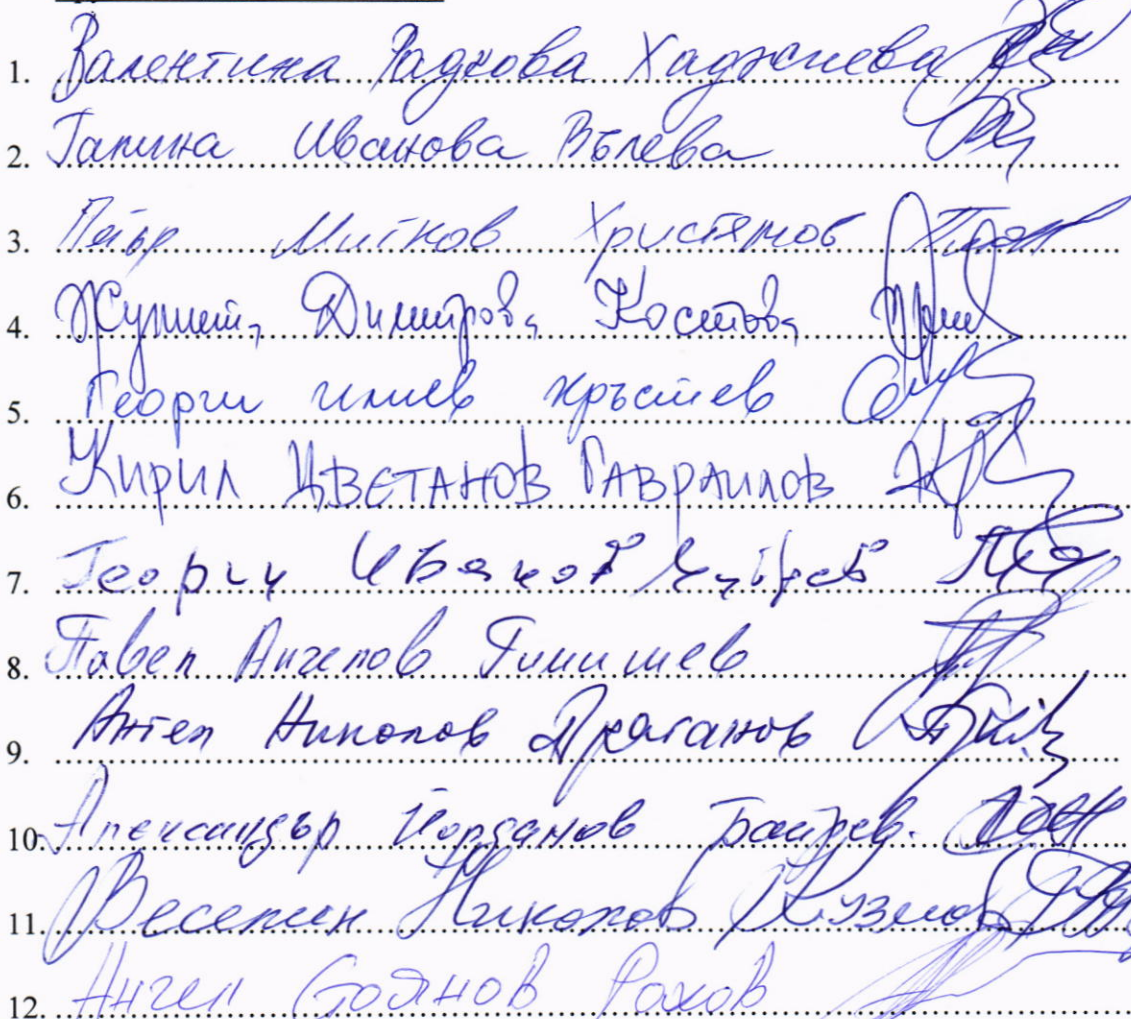 1. Валентина Радкова Хаджиева
2. Галина Иванова Вълева
3. Петър Митков Христемов
4. Димитрова Костова
5. Георги илиев кръстев
6. Кирил ЦВЕТАНОВ ГАВРАИЛОВ
7. Георги Иванов
8. Павел Ангелов
9. Ангел Николов Драганов
10. Александър Йорданов
11. Веселин Николов Кузмов
12. Ангел Стоянов Рахов